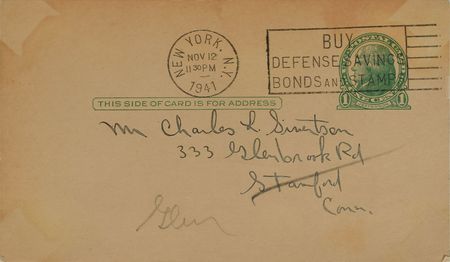 NEW YORK, N.Y.
NOV 12
11 30 PM
1941
BUY
DEFENSE SAVINGS
BONDS AND STAMPS
1 1
THIS SIDE OF CARD IS FOR ADDRESS
Mr Charles L Sivertson
333 Glenbrook Rd
Stamford
Conn.
Glen